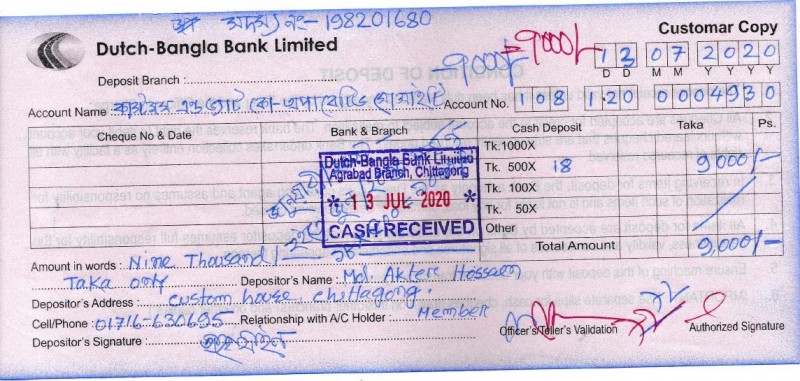 সদস্য নং- 198201680
Customar Copy
Dutch-Bangla Bank Limited
=9000/=
-9000/-
13 07 2020
D D M M Y Y Y Y
Deposit Branch :
Account Name : কাস্টমস এন্ড ভ্যাট কো-অপারেটিভ সোসাইটি Account No. 108 120 0004930
Cheque No & Date Bank & Branch Cash Deposit Taka Ps.
Tk. 1000X
Tk. 500X 18 9,000/-
Tk. 100X
Tk. 50X
Other
Total Amount 9,000/-
Dutch-Bangla Bank Limited
Agrabad Branch, Chittagong
* 13 JUL 2020 *
CASH RECEIVED
Amount in words : Nine Thousand
Taka only Depositor's Name : Md. Akter Hossen
Depositor's Address : custom house, chittagong.
Cell/Phone : 01716-630695 Relationship with A/C Holder : Member
Depositor's Signature :
Officer's/Teller's Validation Authorized Signature